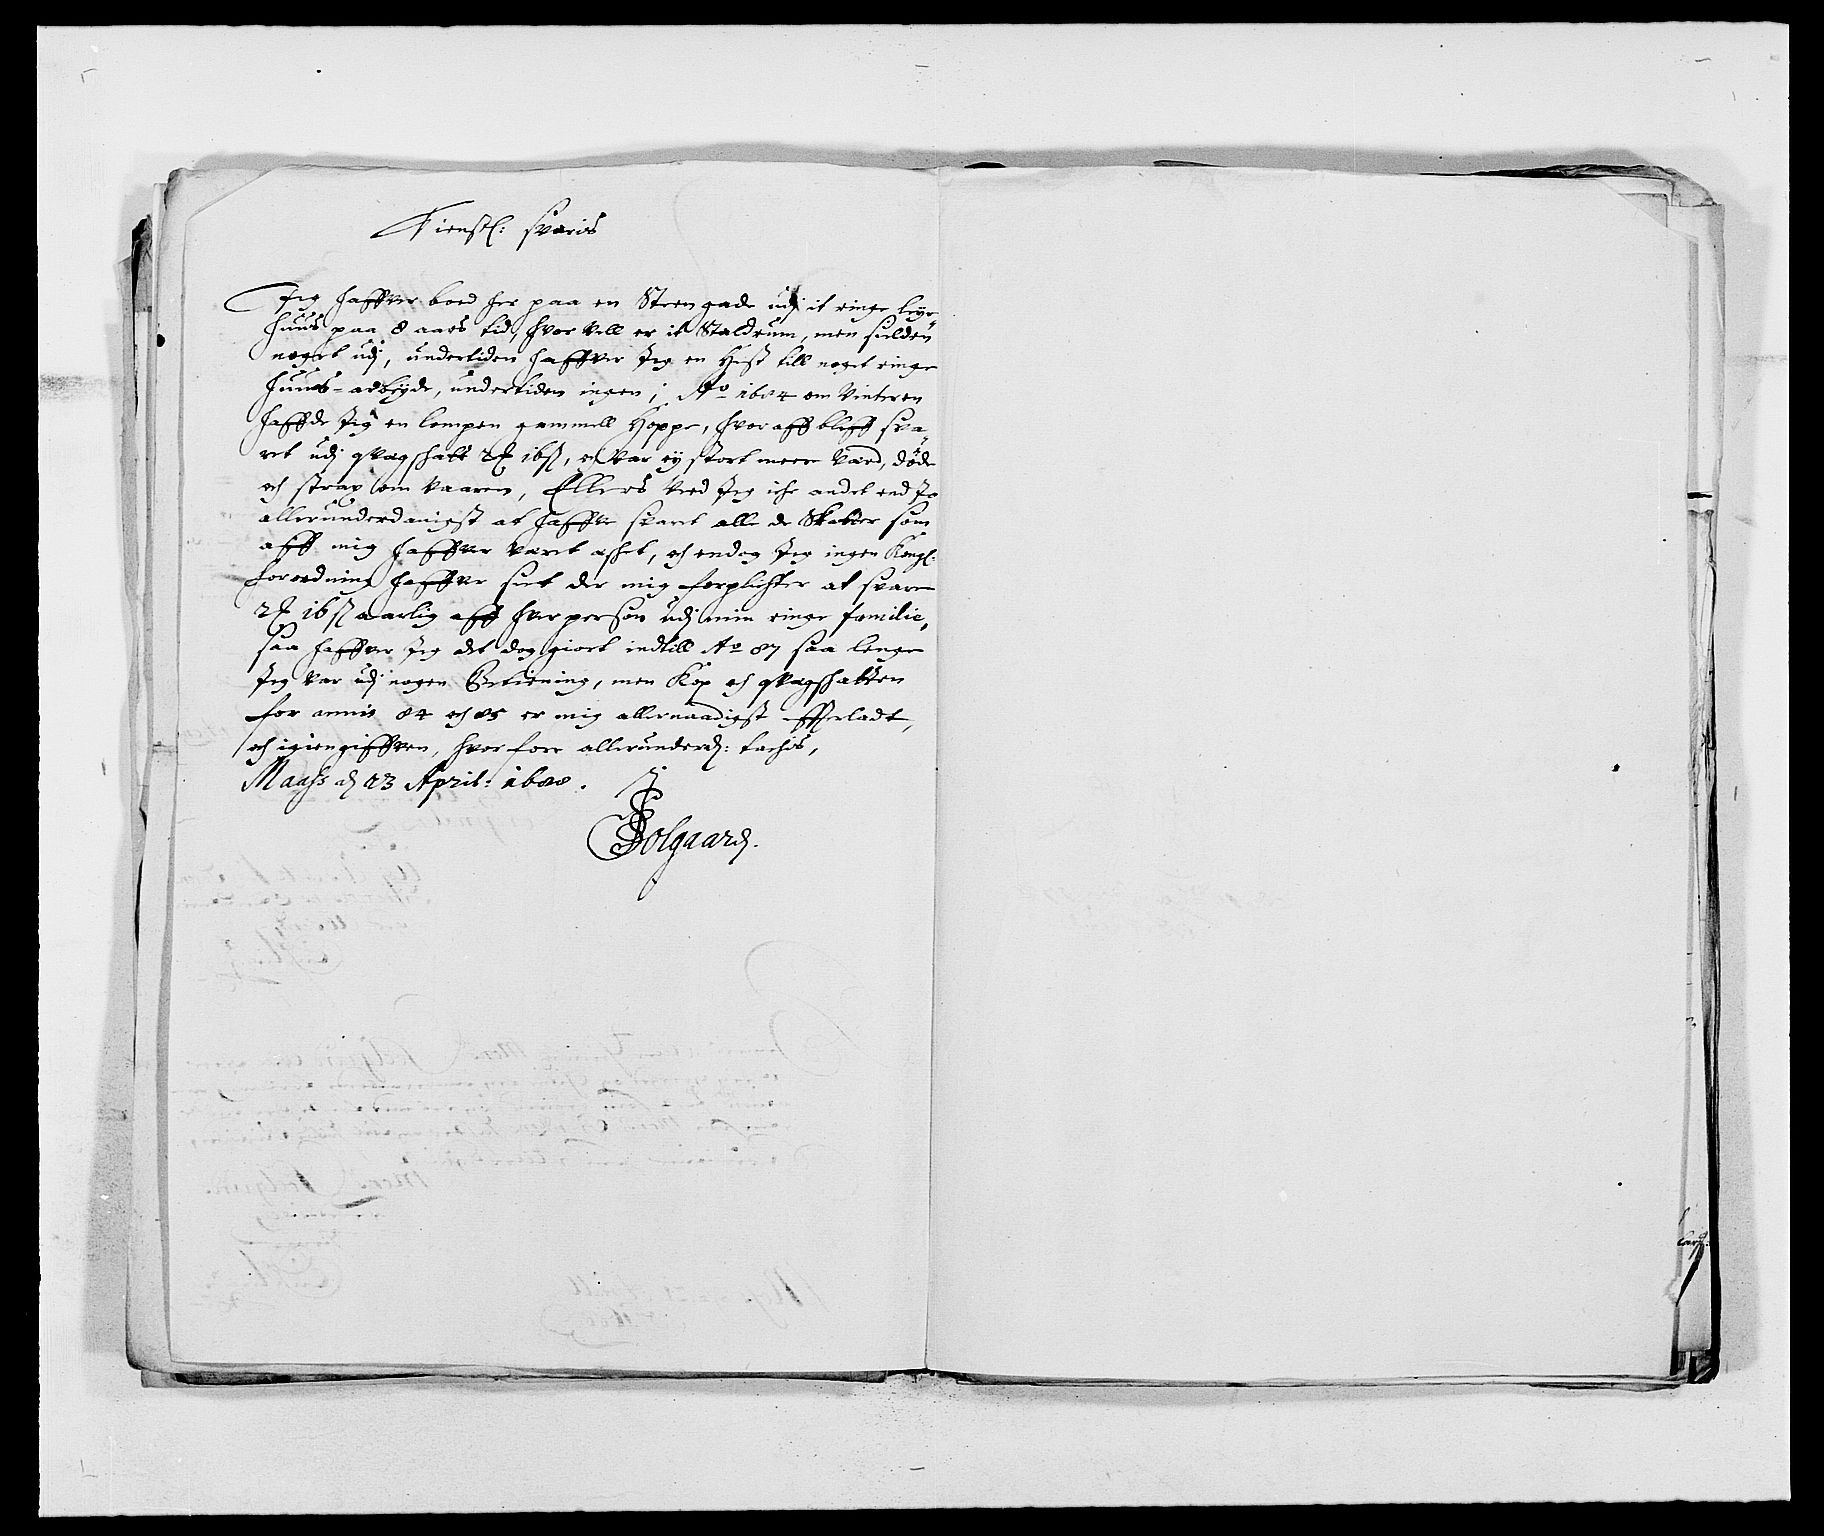 Tienstl: svaris
Jeg haffver boed her paa en Steen gade udj it ringe leye-
huus paa 8 aars tid, hvor vell er it Staldrum, men sielden
noget udj, undertiden haffver Jeg en Hest till noget ringe
huus-arbeyde, undertiden ingen; Ao 1684 om Vinteren
haffde Jeg en lompen gammell Hoppe, hvoraff bleff sva-
ret udj qvægskatt 16 ß, och var ey stort meere værd, døde
och strax om vaaren, Ellers veed Jeg iche andet end Jo
allerunderdanigst at haffve svaret alle de Skatter som
aff mig haffver været æsket, och endog Jeg ingen Kongl:
forordning haffver seet der mig forplichter at svare
2 16 ß aarlig aff hver person udj min ringe familie,
saa haffver Jeg det dog giort indtill Ao 87 saa lenge
Jeg var udj nogen Betiening, men Kop och qvægskatten
for annis 84 och 85 er mig allernaadigst effterladt,
och igiengiffven, hvorfore allerunderd: tachis,
Maass d 23 April: 1688.
Solgaard.